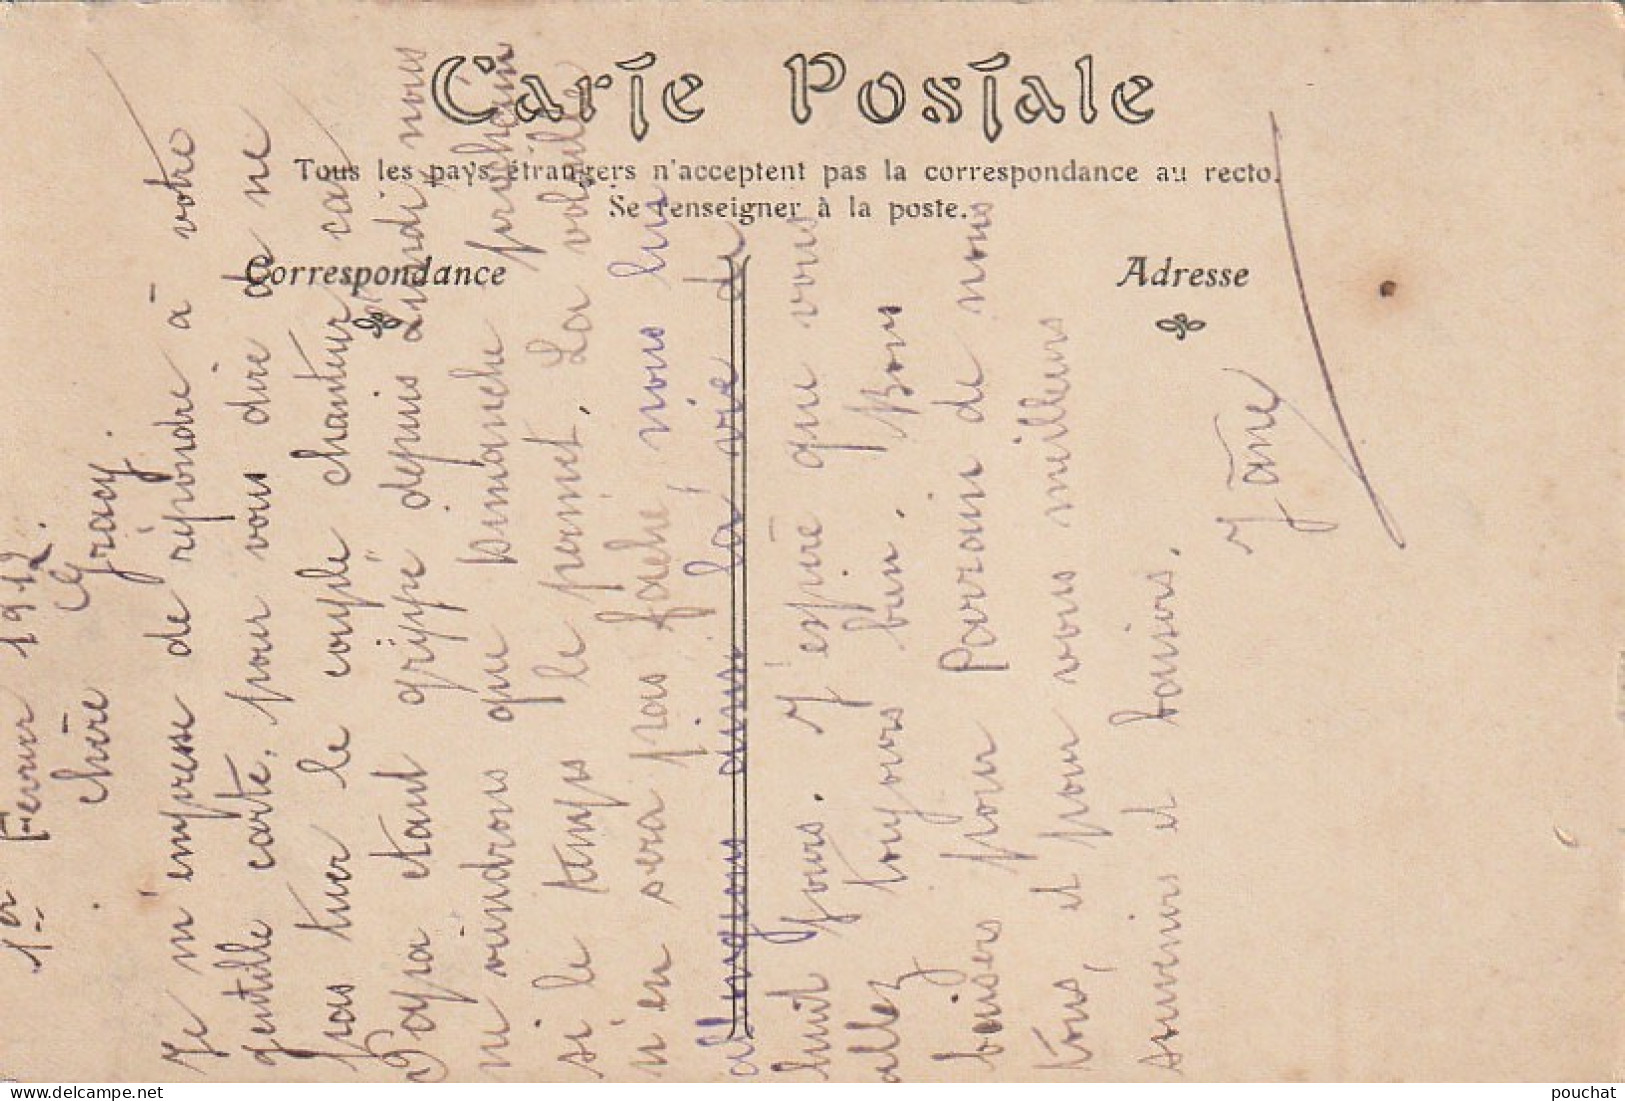 Carte Postale
Tous les pays étrangers n'acceptent pas la correspondance au recto.
Se renseigner à la poste.
Correspondance
Adresse
1er Fevrier 1912.
Chère Gracy.
Je m'empresse de répondre à votre
gentille carte, pour vous dire de ne
pas tuer le couple chanteur car
Papa etant grippé depuis Lundi nous
ne viendrons que Dimanche prochain
si le temps le permet. La volaille
n'en sera pas fachée, nous lui
allongeons ainsi la vie de
huit jours. J'espère que vous
allez toujours bien. Bons
baisers pour Parrain de nous
tous, et pour vous meilleurs
souvenirs et baisers.
Jane
pouchat